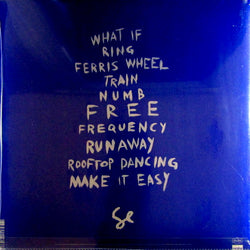 WHAT IF
RING
FERRIS WHEEL
TRAIN
NUMB
FREE
FREQUENCY
RUNAWAY
ROOFTOP DANCING
MAKE IT EASY
Se